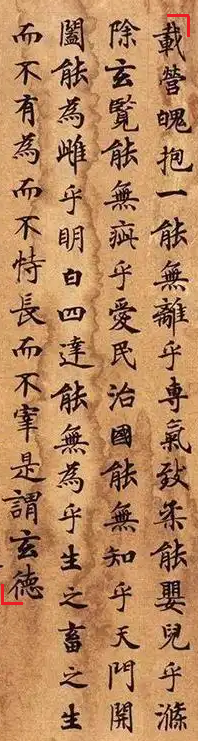 載營魄抱一能無離乎專氣致柔能嬰兒乎滌
除玄覽能無疵乎愛民治國能無知乎天門開
闔能為雌乎明白四達能無為乎生之畜之生
而不有為而不恃長而不宰是謂玄德